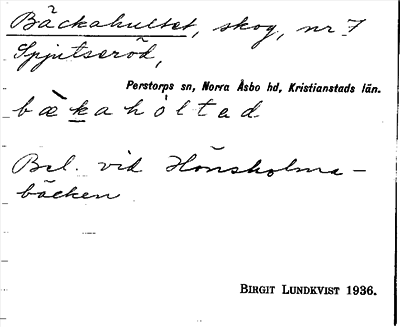 Bäckahultet, skog, nr 7
Spjutseröd,
Perstorps sn, Norra Åsbo hd, Kristianstads län.
bækahòltad
Bel. vid Hönsholma-
bäcken
BIRGIT LUNDKVIST 1936.